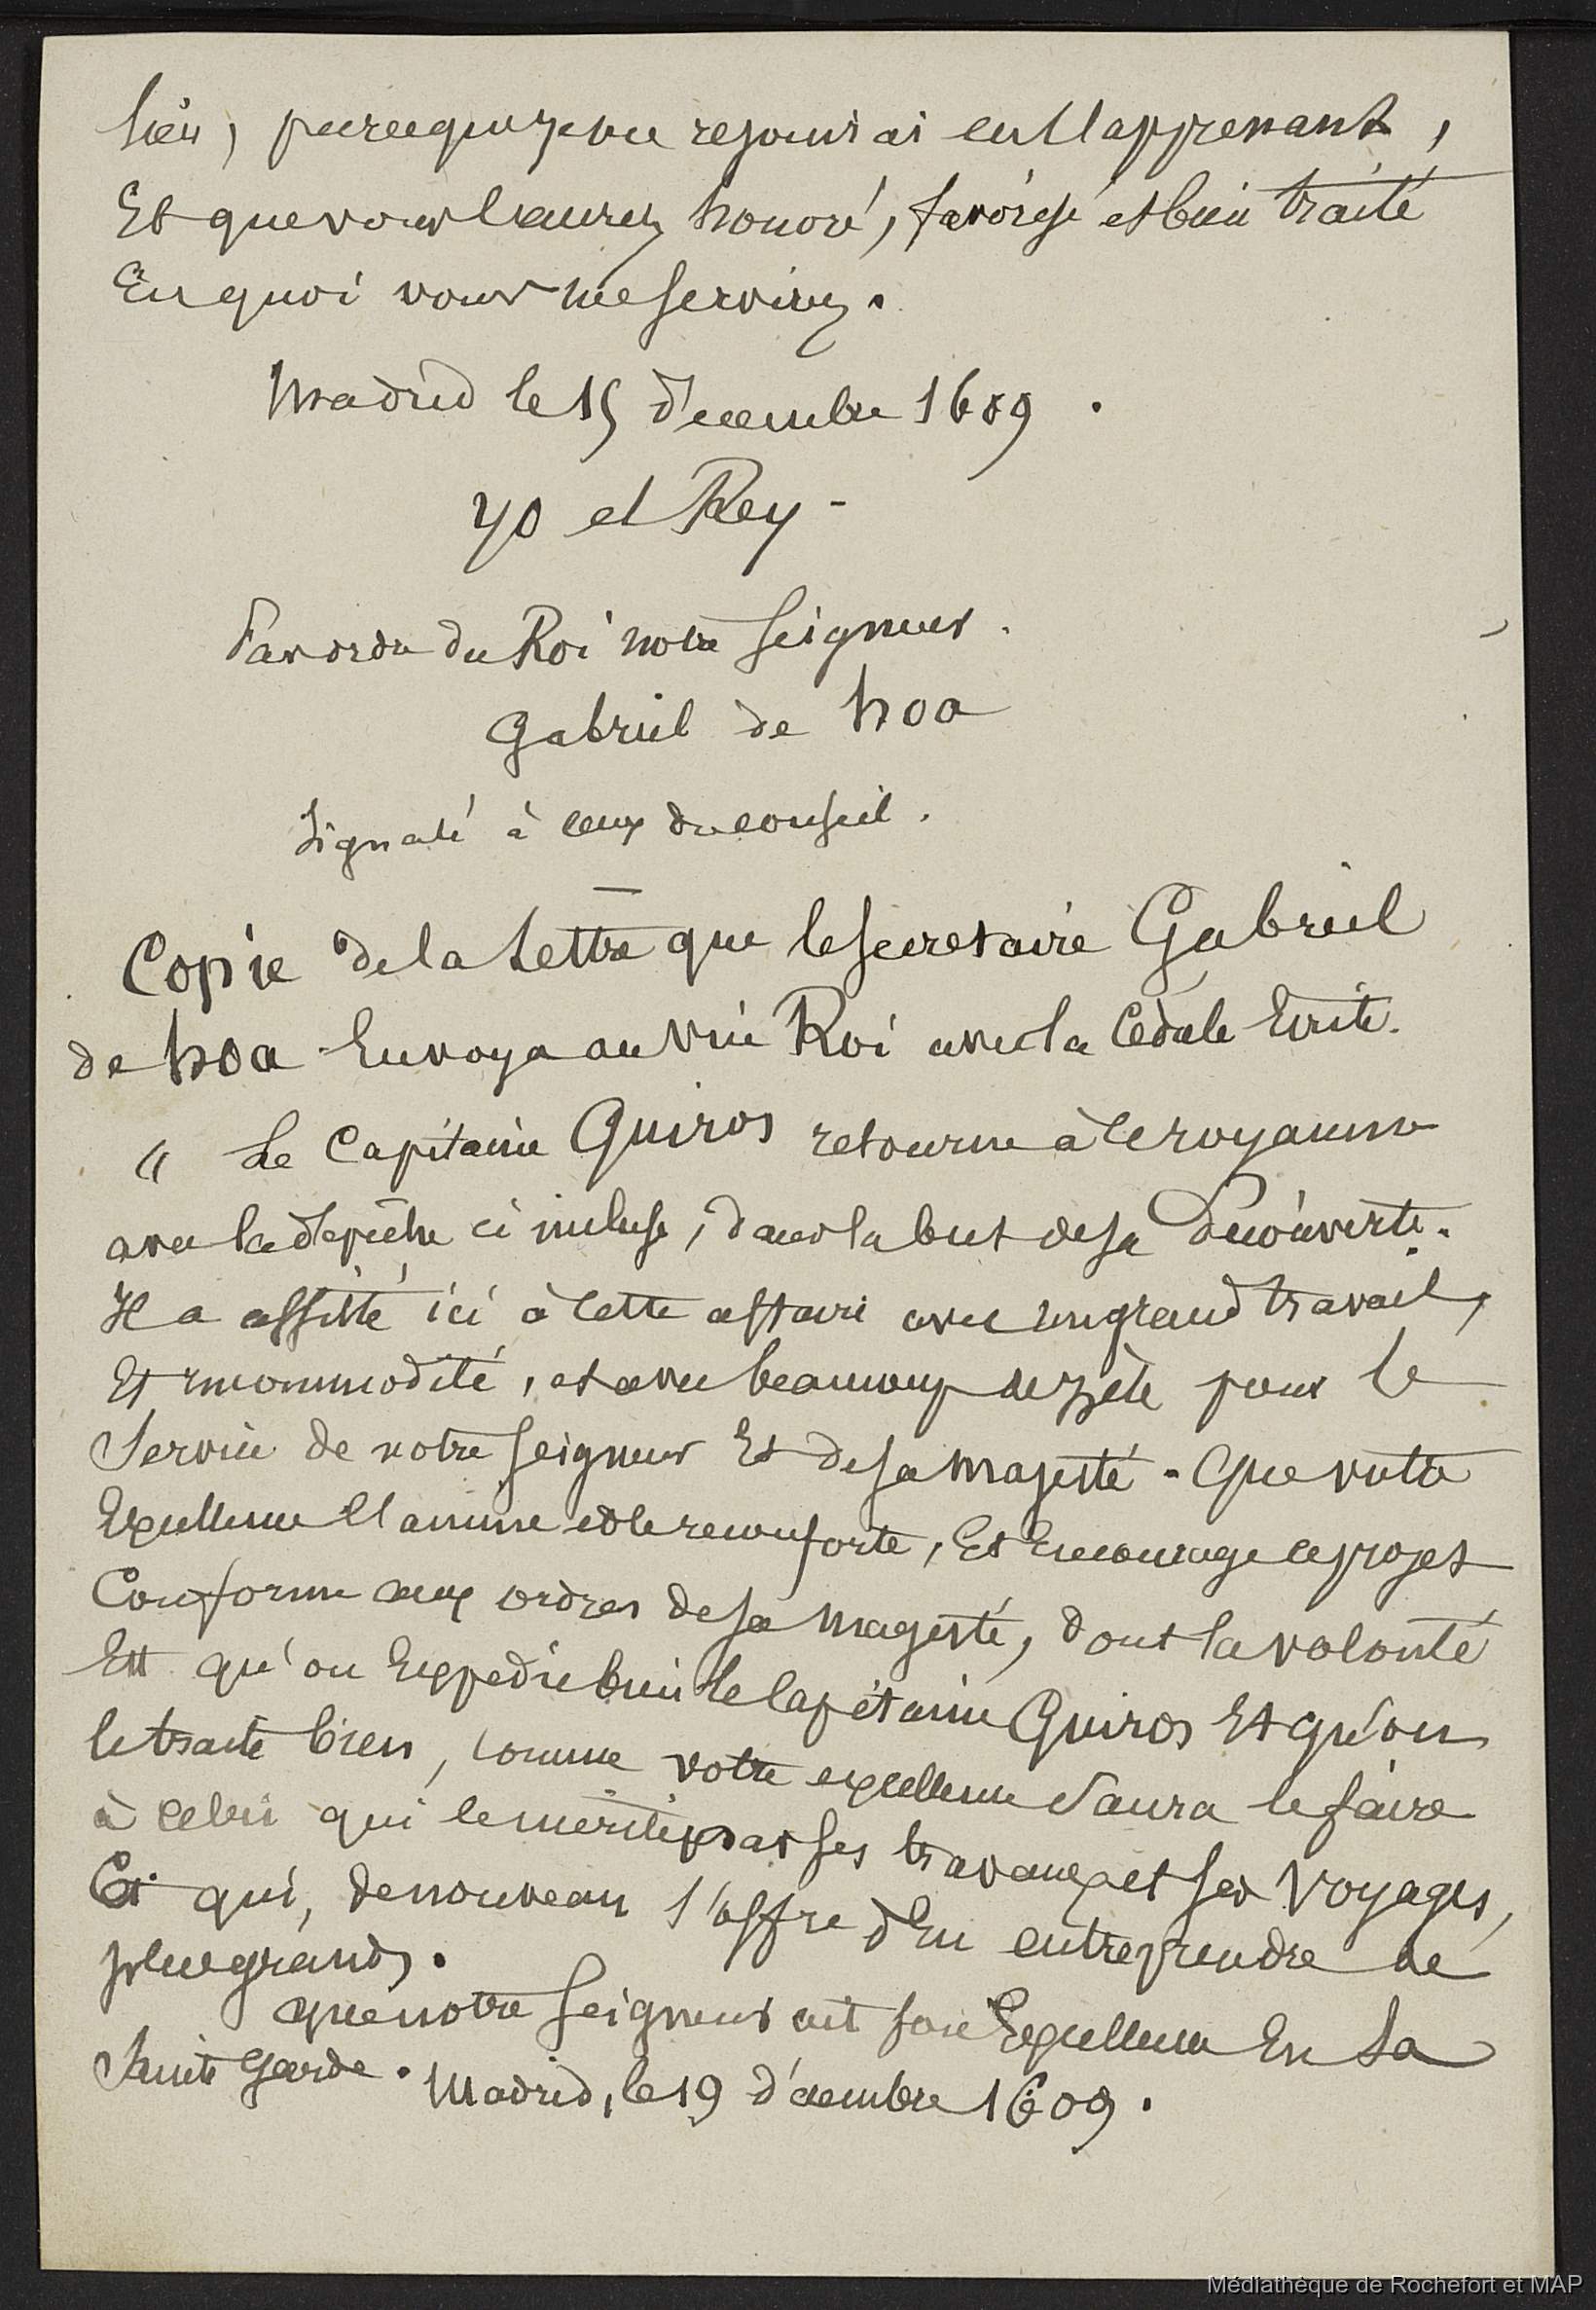 lieu, parceque je me rejouirai en l'apprenant,
Et que vous l'aurez honoré, favorisé et bien traité
En quoi vous me servirez.
Madrid le 19 Decembre 1609.
yo el Rey -
Par ordre du Roi notre Seigneur.
Gabriel de hoa
Signalé à ceux du conseil.
Copie de la Lettre que le secretaire Gabriel
de hoa Envoya au vice Roi avec la Cédule Ecrite.
" Le Capitaine Quiros retourne à ce royaume
avec la depêche ci incluse, dans le but de sa Découverte.
Il a assisté ici à cette affaire avec un grand travail,
Et incommodité, et avec beaucoup de zèle pour le
Service de notre Seigneur Et de sa Majesté. Que votre
Excellence l'anime et le reconforte, Et Encourage ce projet
Conforme aux ordres de sa Magesté, dont la volonté
Est qu'on Expedie bien le Capitaine Quiros Et qu'on
le traite bien, comme votre excellence saura le faire
à celui qui le merite par ses travaux et ses Voyages,
Et qui, de nouveau s'offre d'En entreprendre de
plus grands.
que notre Seigneur ait son Excellence En Sa
Sainte Garde. Madrid, le 19 décembre 1609.
Médiathèque de Rochefort et MAP